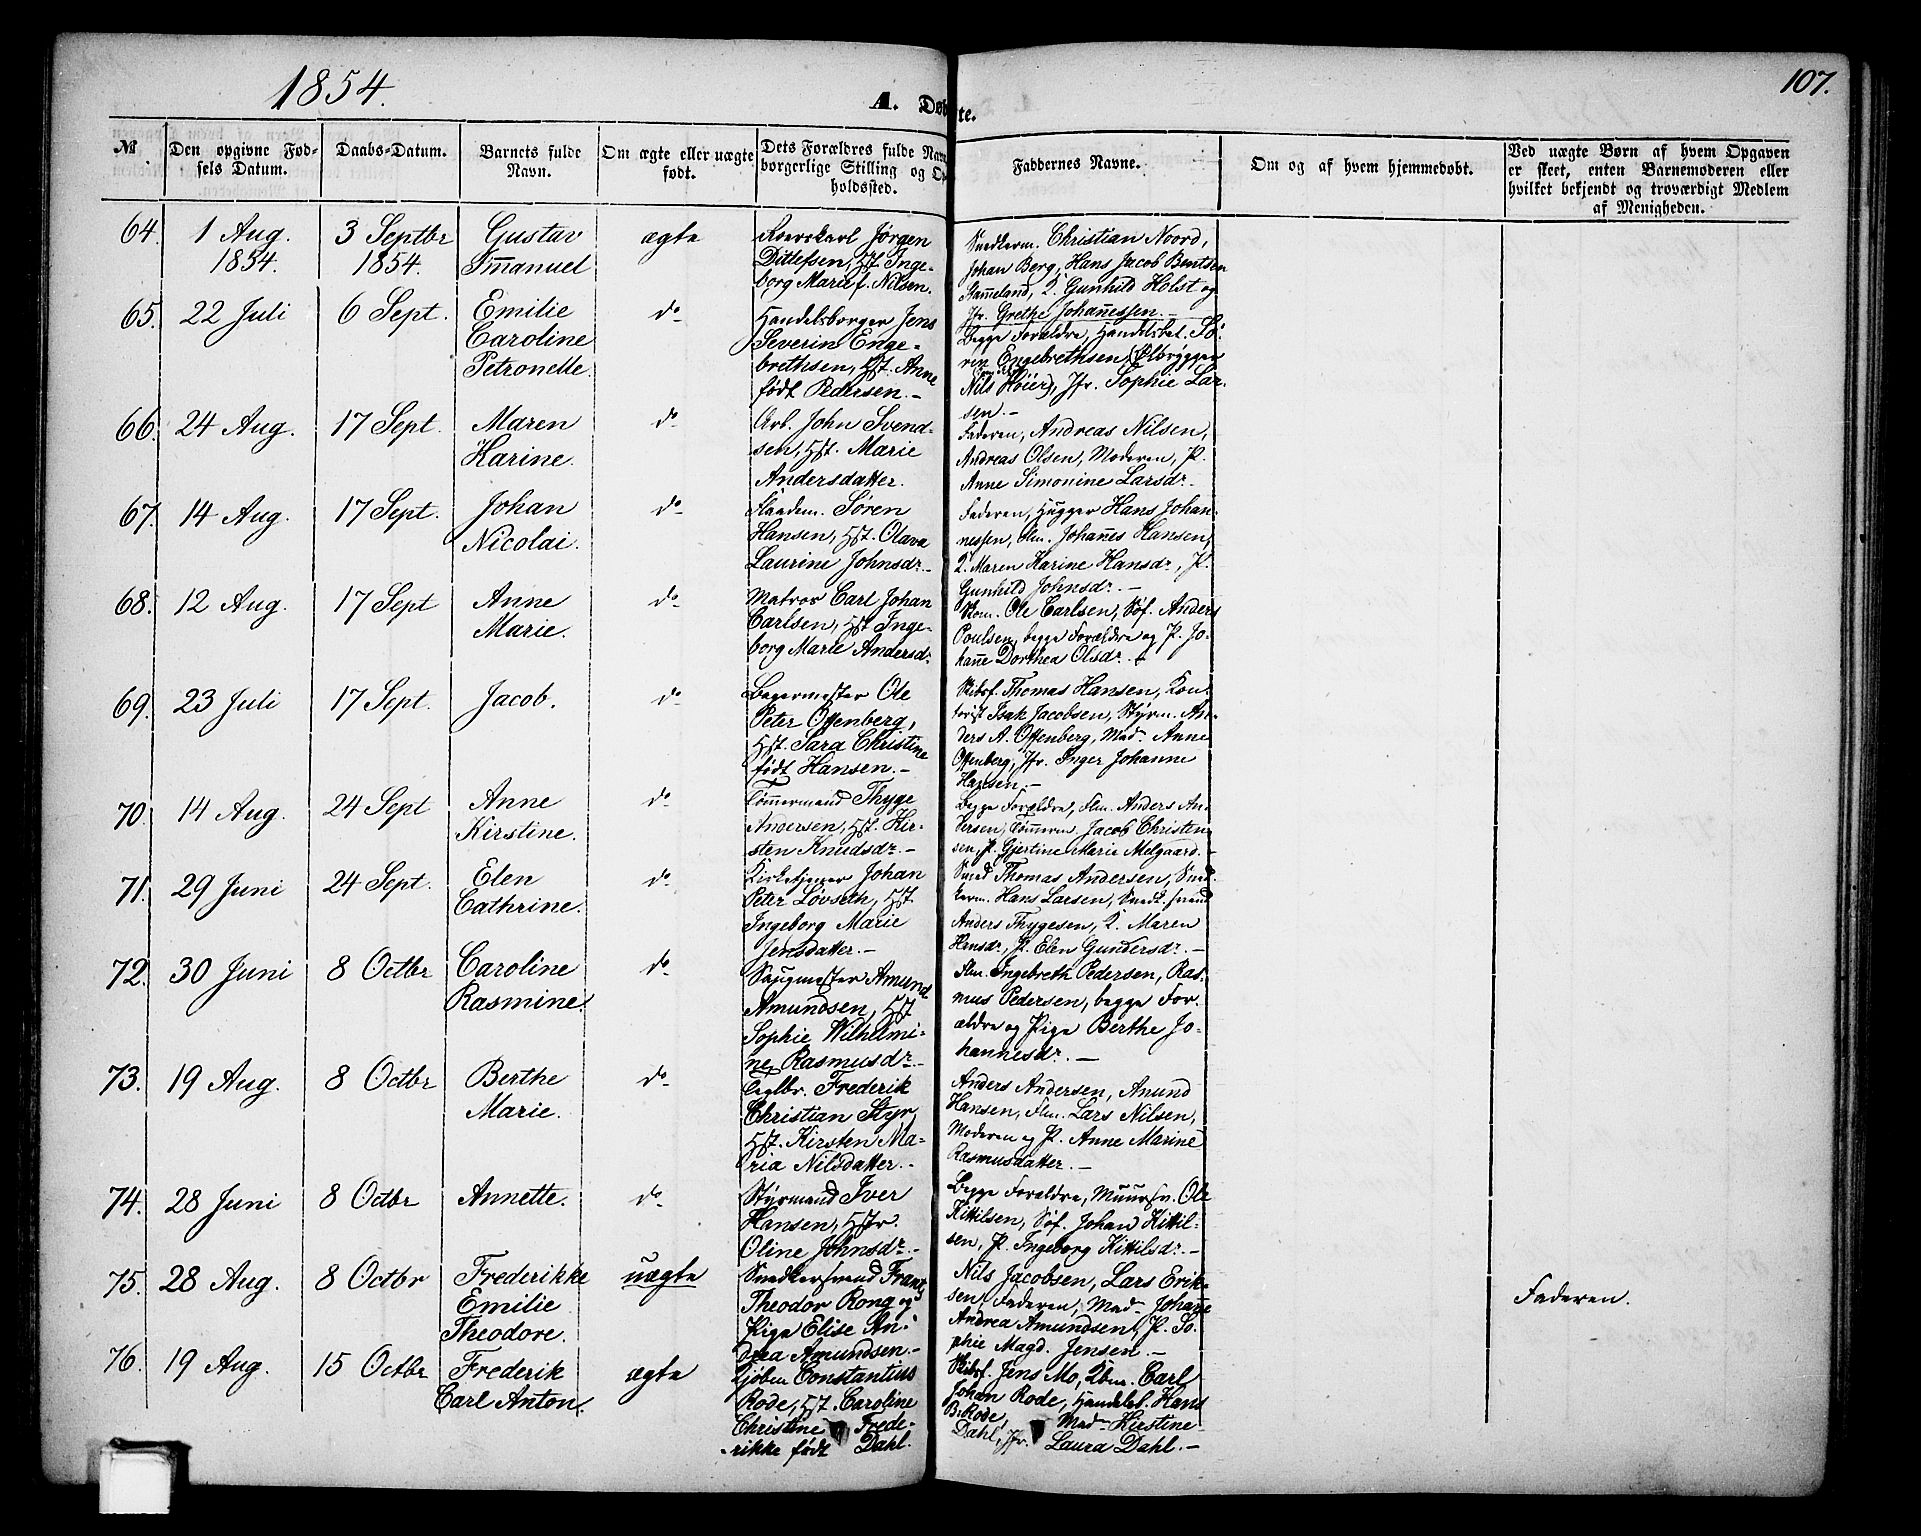 1854.
A. Døbte.
107.
No.
Den opgivne Fød-
sels Datum.
Daabs-Datum.
Barnets fulde
Navn.
Om ægte eller uægte
født.
Dets Forældres fulde Navn
borgerlige Stilling og Op
holdssted.
Faddernes Navne.
Om og af hvem hjemmedøbt.
Ved uægte Børn af hvem Opgaven
er skeet, enten Barnemoderen eller
hvilket bekjendt og troværdigt Medlem
af Menigheden.
64. 1 Aug.
1854.
3 Septbr
1854.
Gustav
Immanuel
ægte
Jørgen
Ditlefsen, Hst. Inge-
borg Marie f. Nilsen.
Snedkerm. Christian Noord,
Johan Berg, Hans Jacob Bentsen
Stameland, K. Gunhild Holst og
Jfr. Grethe Johañessen. —
65. 22 Juli
6 Sept.
Emilie
Caroline
Petronelle.
do
Handelsborger Jens
Severin Enge-
brethsen, Hst. Anne
født Pedersen. —
Begge Forældre, Handelsbet. Sö-
ren Engebrethsen, Ölbrygger
Nils Höier, Jfr. Sophie Lar-
sen. —
66. 24 Aug.
17 Sept.
Maren
Karine.
do
Arb. John Svend-
sen, Hst. Marie
Andersdatter.
Faderen, Andreas Nilsen,
Andreas Olsen, Moderen, P.
Anne Simonine Larsdr.
67. 14 Aug.
17 Sept.
Johan
Nicolai.
do
Flaadem. Søren
Hansen, Hst. Olava
Laurine Johnsdr. —
Faderen, Hugger Hans Johan-
nessen, Flm. Johañes Hansen,
K. Maren Karine Hansdr, P.
Gunhild Johnsdr. —
68. 12 Aug.
17 Sept
Anne
Marie.
do
Matros Carl Johan
Carlsen, Hst Inge-
borg Marie Andersdr.
Skom. Ole Carlsen, Söf. Anders
Poulsen, begge Forældre og P. Jo-
hañe Dorthea Olsdr. —
69. 23 Juli
17 Sept.
Jacob.
do
Bagermester Ole
Peter Offenberg,
Hst. Sara Christine
født Hansen. —
Skibsf. Thomas Hansen, Kon-
torist Isak Jacobsen, Styrm. An-
ders A. Offenberg, Mad. Anne
Offenberg, Jfr. Inger Johanne
Hansen. —
70. 14 Aug.
24 Sept
Anne
Kirstine.
do
Tömmermand Thyge
Andersen, Hst. Kir-
sten Knudsdr. —
Begge Forældre, Flm. Anders An-
dersen, Tömmerm. Jacob Christen-
sen, P. Gjertine Marie Melgaard. —
71. 29 Juni
24 Sept.
Elen
Cathrine.
do
Kirketjener Johan
Peter Løvseth, Hst
Ingeborg Marie
Jensdatter. —
Smed Thomas Andersen, Sned-
kerm. Hans Larsen, Snedk. svend
Anders Thygesen, K. Maren
Hansdr, P. Elen Gundersdr. —
72. 30 Juni
8 Octbr
Caroline
Rasmine.
do
Saugmester Amund
Amundsen, Hst
Sophie Wilhelmi-
ne Rasmusdr. —
Flm. Ingebreth Pedersen, Ras-
mus Pedersen, begge For-
ældre og Pige Berthe Jo-
hannesdr. —
73. 19 Aug.
8 Octbr
Berthe
Marie.
do
Teglbr. Frederik
Christian Styr,
Hst. Kirsten Ma-
ria Nilsdatter. —
Anders Andersen, Anund
Hansen, Flm. Lars Nilsen,
Moderen og P. Anne Marine
Rasmusdatter. —
74. 28 Juni
8 Octbr
Annette.
do
Styrmand Iver
Hansen, Hstr.
Oline Johnsdr. —
Begge Forældre, Muursv. Ole
Kittilsen, Söf. Johan Kittil-
sen, P. Ingeborg Kittilsdr. —
75. 28 Aug.
8 Octbr
Frederikke
Emilie
Theodore.
uægte
Snedkersvend Frantz
Theodor Rong og
Pige Elise An-
drea Amundsen. —
Nils Jacobsen, Lars Erik-
sen, Faderen, Mad. Johañe
Andrea Amundsen, P. So-
phie Magd. Jensen. —
Faderen.
76. 19 Aug.
15 Octbr
Frederik
Carl Anton.
ægte
Kjøbm Constantius
Rode, Hst. Caroline
Christine Frede-
rikke født Dahl.
Skibsf. Jens Mo, Kbm. Carl
Johan Rode, Handelsb. Hans
B. Rode, Mad. Kirstine
Dahl, Jfr. Laura Dahl. —